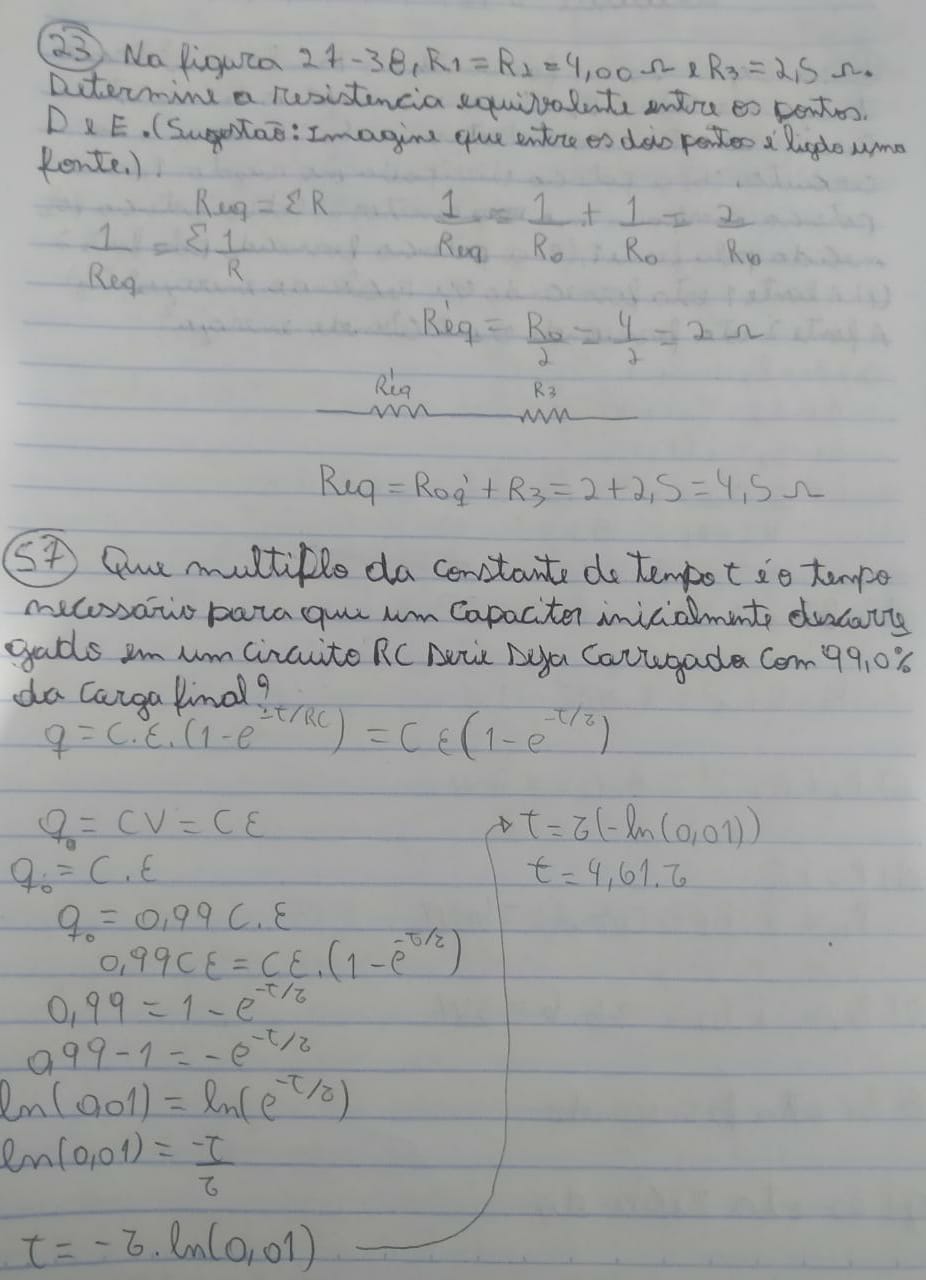 23 Na figura 27-38, R1 = R2 = 4,00 Ω e R3 = 2,5 Ω.
Determine a resistencia equivalente entre os pontos.
D e E. (Sugestão: Imagine que entre os dois pontos é ligdo uma
fonte.)
Req = ΣR
1/Req = Σ 1/R
1/Req = 1/R0 + 1/R0 = 2/R0
Réq = R0/2 = 4/2 = 2 Ω
Réq R3
Req = Roq' + R3 = 2 + 2,5 = 4,5 Ω
57 Que multiplo da constante de tempo τ é o tempo
necessário para que um capacitor inicialmente descarre
gado em um circuito RC Serie Seja Carregada com 99,0%
da carga final?
q = C.ε.(1-e^-t/RC) = Cε(1-e^-t/τ)
q0 = CV = Cε
q0 = C.ε
q0 = 0,99 C.ε
0,99Cε = Cε.(1-e^-t/τ)
0,99 = 1-e^-t/τ
0,99-1 = -e^-t/τ
ln(0,01) = ln(e^-t/τ)
ln(0,01) = -t/τ
t = -τ.ln(0,01)
t = τ(-ln(0,01))
t = 4,61.τ